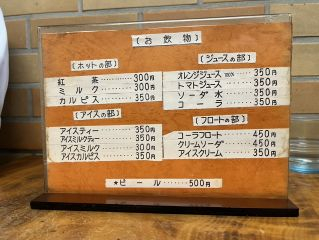 〔お飲物〕
〔ホットの部〕
紅茶……300円
ミルク……300円
カルピス……350円
〔ジュースの部〕
オレンジジュース 100% 350円
トマトジュース……350円
ソーダ水……350円
コーラ……350円
〔アイスの部〕
アイスティー……350円
アイスミルクティー…350円
アイスミルク……300円
アイスカルピス……350円
〔フロートの部〕
コーラフロート……450円
クリームソーダ……450円
アイスクリーム……350円
★ビール……500円